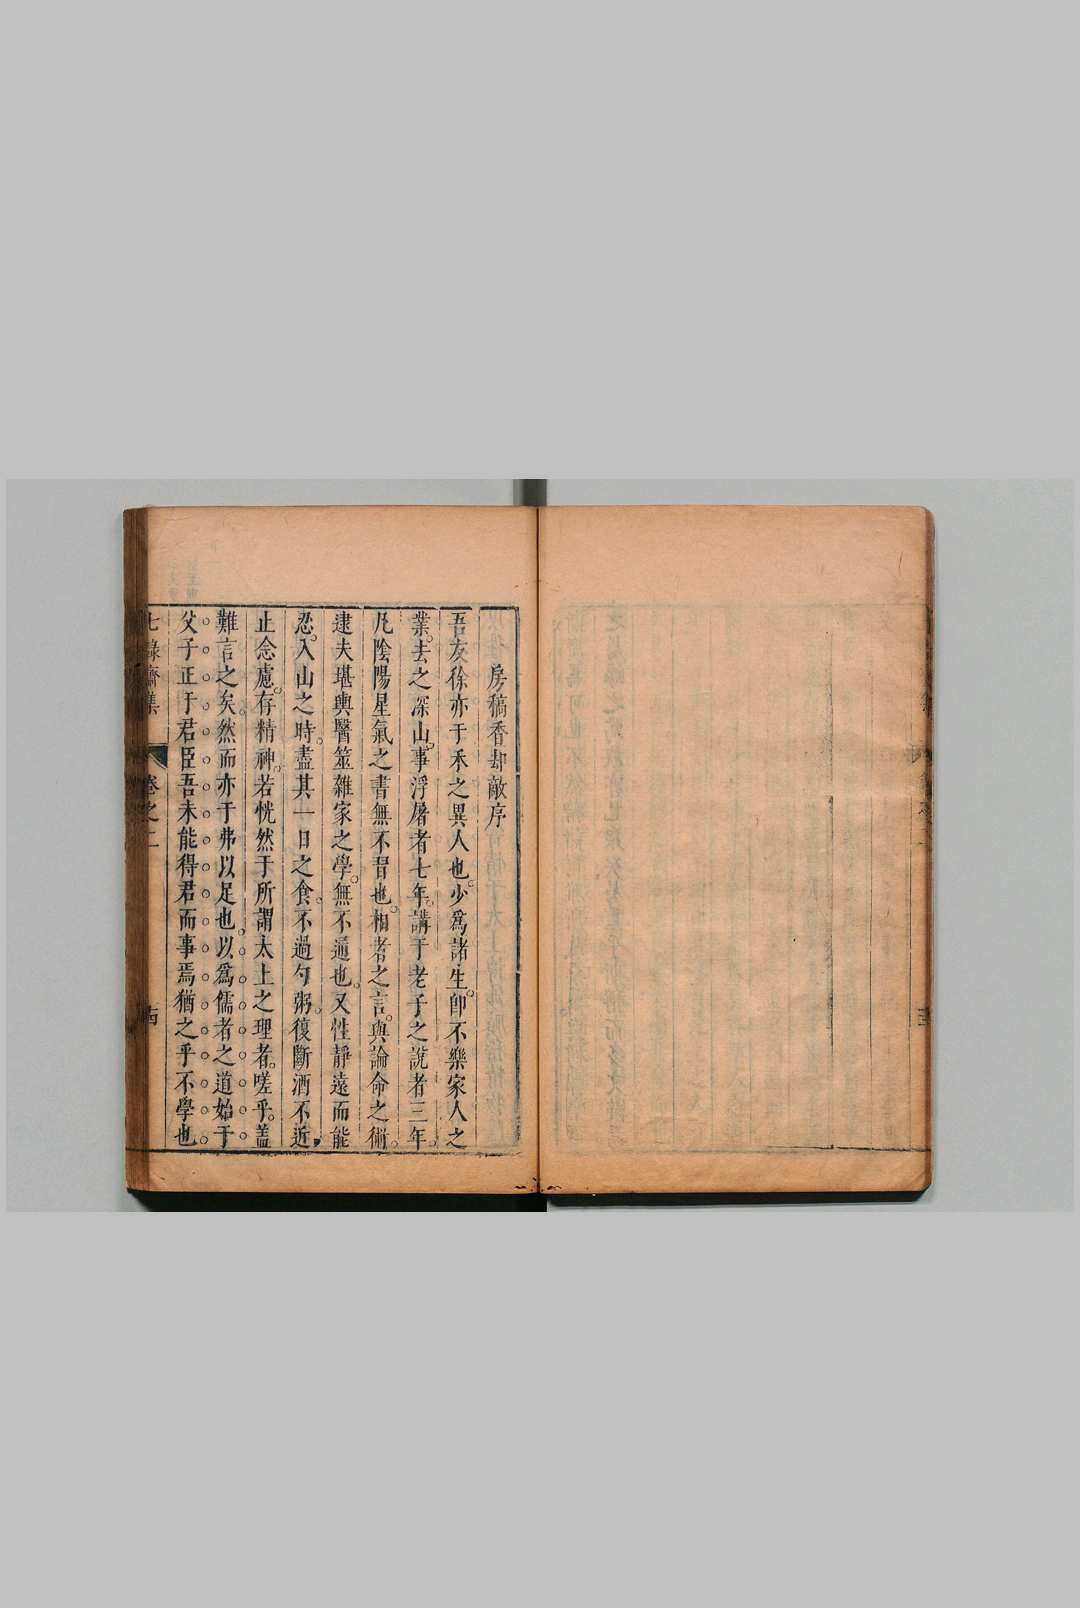 房稿香却敵序
吾友徐亦于禾之異人也。少爲諸生。卽不樂家人之
業。去之深山。事浮屠者七年。講于老子之說者三年。
凡陰陽星氣之書無不習也。相者之言。與論命之術。
逮夫堪輿醫筮雜家之學。無不通也。又性靜遠而能
忍。入山之時。盡其一日之食。不過勺粥。復斷酒不近
止念慮。存精神。若恍然于所謂太上之理者。嗟乎。蓋
難言之矣。然而亦于弗以足也。以爲儒者之道始于
父子正于君臣吾未能得君而事焉猶之乎不學也
七錄齋集 卷之二 十四